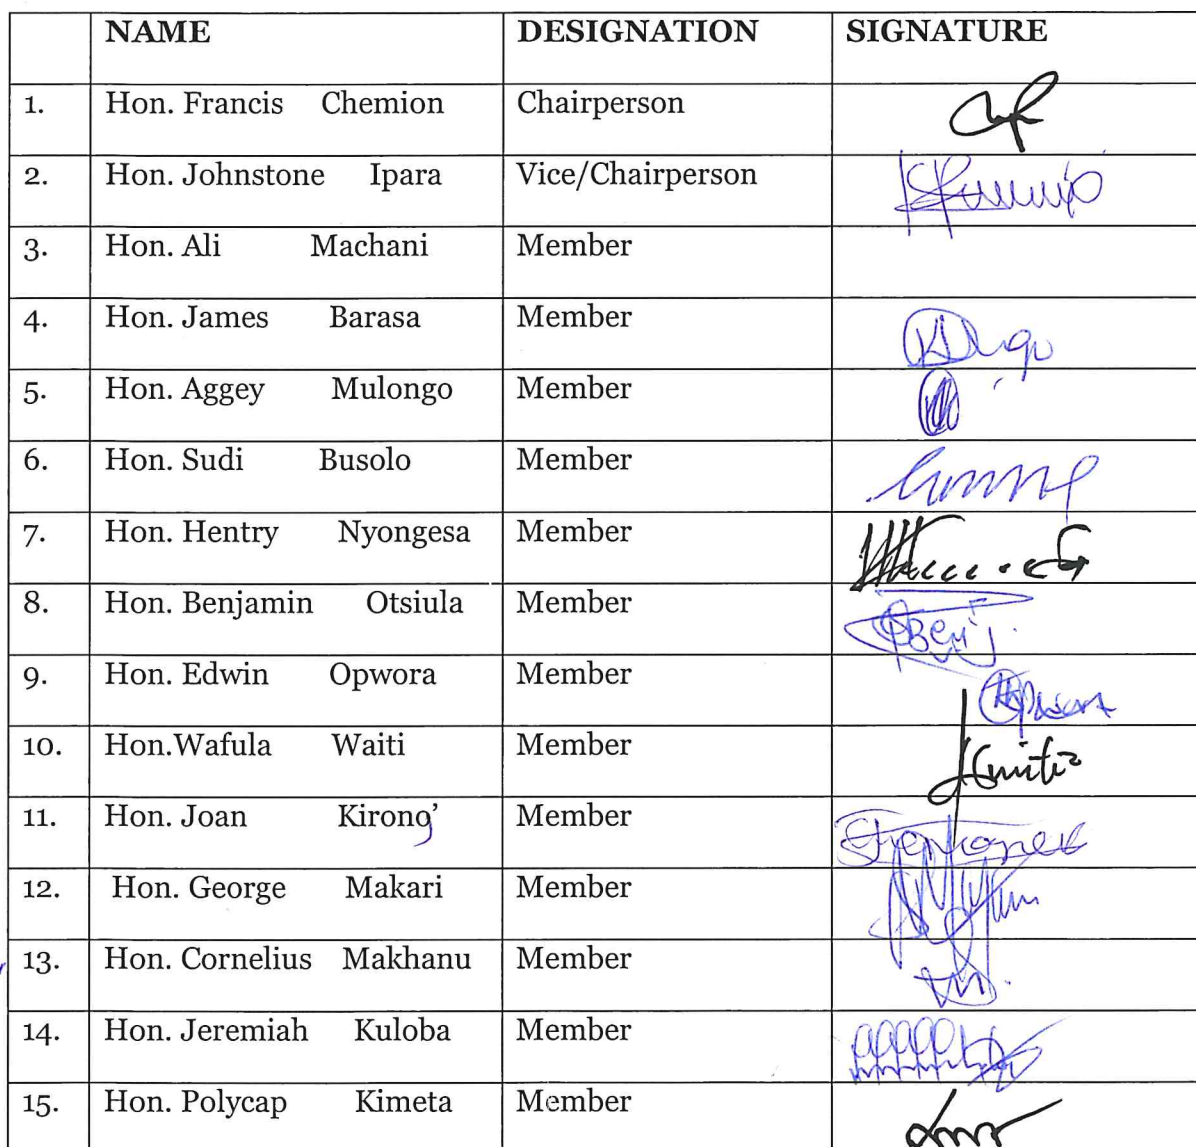 NAME DESIGNATION SIGNATURE
1. Hon. Francis Chemion Chairperson
2. Hon. Johnstone Ipara Vice/Chairperson
3. Hon. Ali Machani Member
4. Hon. James Barasa Member
5. Hon. Aggey Mulongo Member
6. Hon. Sudi Busolo Member
7. Hon. Hentry Nyongesa Member
8. Hon. Benjamin Otsiula Member
9. Hon. Edwin Opwora Member
10. Hon.Wafula Waiti Member
11. Hon. Joan Kirono' Member
12. Hon. George Makari Member
13. Hon. Cornelius Makhanu Member
14. Hon. Jeremiah Kuloba Member
15. Hon. Polycap Kimeta Member